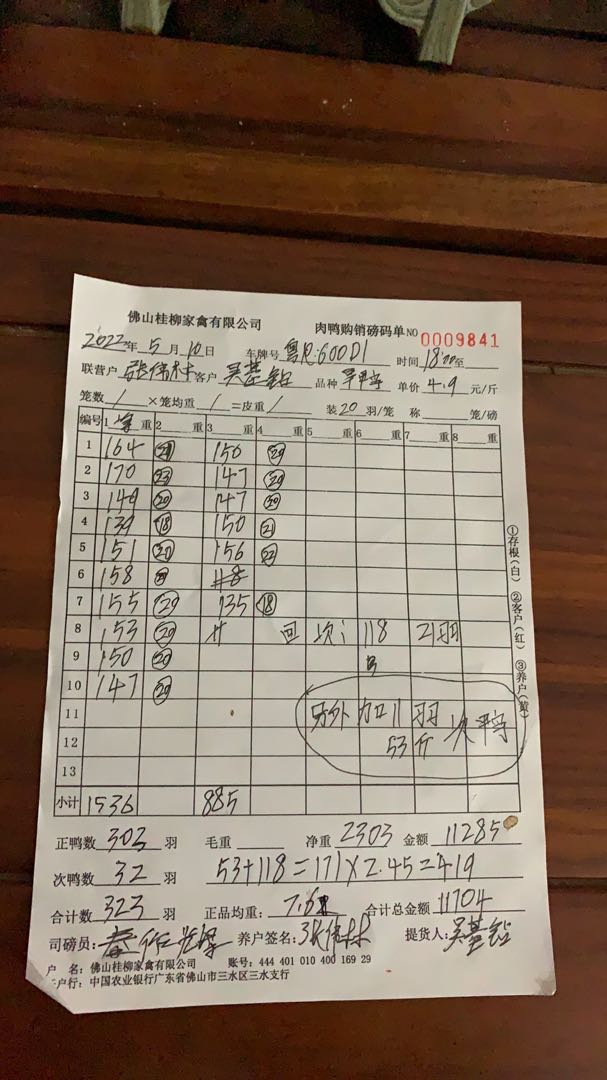 佛山桂柳家禽有限公司 肉鸭购销磅码单 NO 0009841
2022年5月10日 车牌号 粤R:600D1 时间18:00至
联营户 张伟林 客户 吴基 品种 单价 4.9 元/斤
笼数 / ×笼均重 / =皮重 / 装20羽/笼 称 笼/磅
编号 1 重 2 重 3 重 4 重 5 重 6 重 7 重 8 重
1 164 150 20
2 170 147 20
3 147 20
4 139 18 150 21
5 151 156
6 158
7 155 20 135 18
8 153 20 回次: 118 21羽
9 150 20
10 147 20
11 另外加11羽
12 53斤 次鸭
13
小计 1536 885
正鸭数 302 羽 毛重 净重 2303 金额 11285
次鸭数 32 羽 53+118=171×2.45=419
合计数 323 羽 正品均重: 7.6 合计总金额 11704
司磅员: 养户签名: 张伟林 提货人: 吴基
户 名: 佛山桂柳家禽有限公司 账号: 444 401 010 400 169 29
户行: 中国农业银行广东省佛山市三水区三水支行
①存根(白) ②客户(红) ③养户(黄)